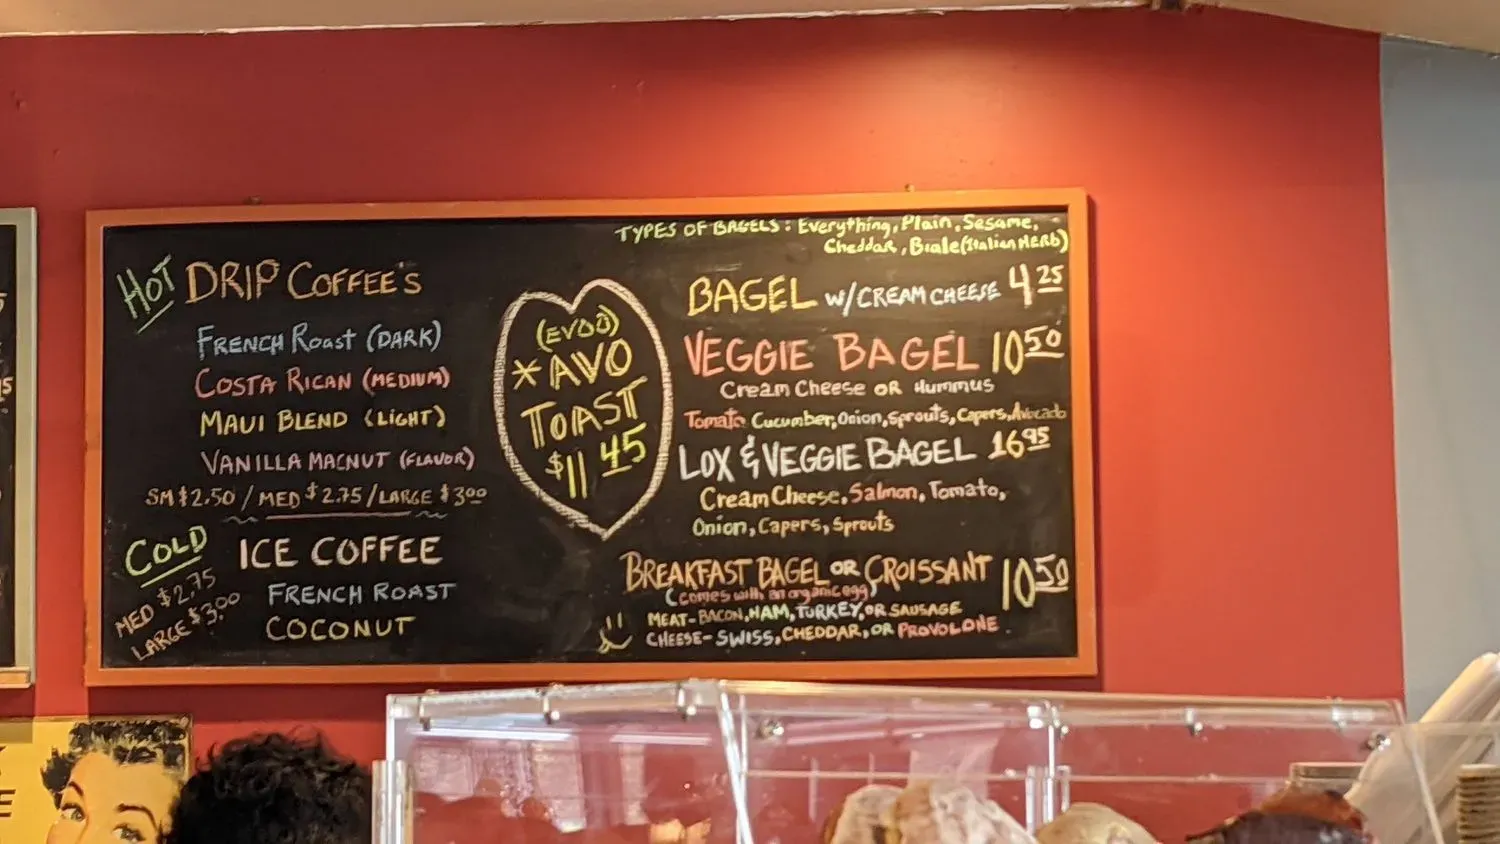 HOT DRIP COFFEE'S
FRENCH ROAST (DARK)
COSTA RICAN (MEDIUM)
MAUI BLEND (LIGHT)
VANILLA MACNUT (FLAVOR)
SM $2.50 / MED $2.75 / LARGE $3.00
COLD ICE COFFEE
MED $2.75
LARGE $3.00
FRENCH ROAST
COCONUT
(EVOO)
*AVO
TOAST
$11.45
TYPES OF BAGELS: Everything, Plain, Sesame,
Cheddar, Biale (Italian HERB)
BAGEL W/CREAM CHEESE 4.25
VEGGIE BAGEL 10.50
Cream Cheese OR Hummus
Tomato, Cucumber, Onion, Sprouts, Capers, Avocado
LOX & VEGGIE BAGEL 16.95
Cream Cheese, Salmon, Tomato,
Onion, Capers, Sprouts
BREAKFAST BAGEL OR CROISSANT 10.50
(comes with an organic egg)
MEAT- BACON, HAM, TURKEY, OR SAUSAGE
CHEESE- SWISS, CHEDDAR, OR PROVOLONE